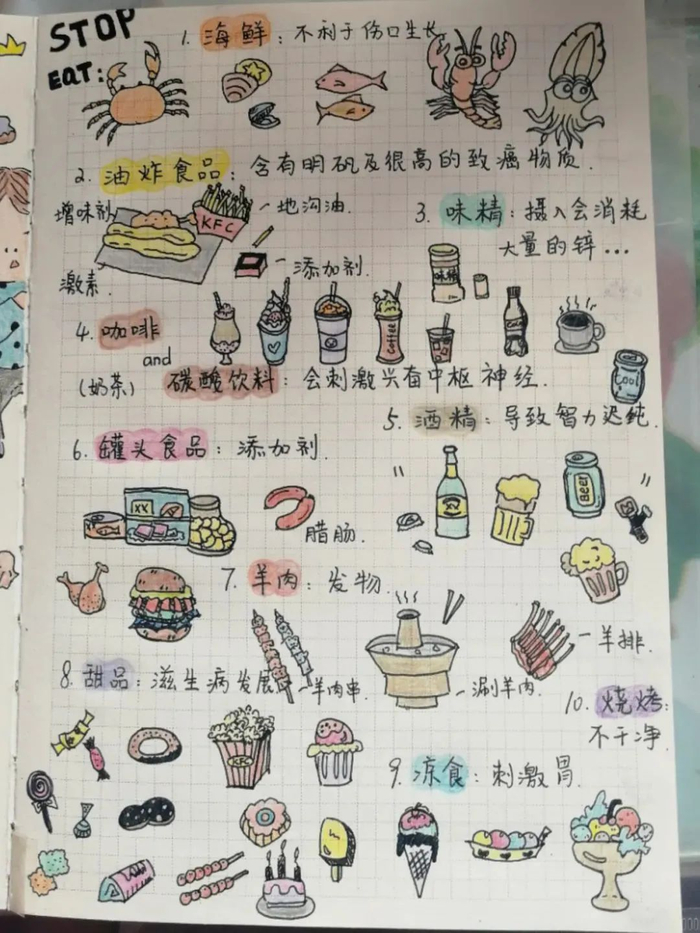 STOP
EAT:
1. 海鲜: 不利于伤口生长
2. 油炸食品: 含有明矾及很高的致癌物质.
增味剂
KFC
地沟油.
添加剂.
激素.
3. 味精: 摄入会消耗
大量的锌...
味精
4. 咖啡
and
(奶茶) 碳酸饮料: 会刺激兴奋中枢神经.
Coffee
Cool
5. 酒精: 导致智力迟钝.
6. 罐头食品: 添加剂.
XX
腊肠.
" "
XX
Beer
7. 羊肉: 发物.
羊肉串.
涮羊肉.
羊排.
8. 甜品: 滋生病发展
KFC
9. 凉食: 刺激胃.
10. 烧烤:
不干净.